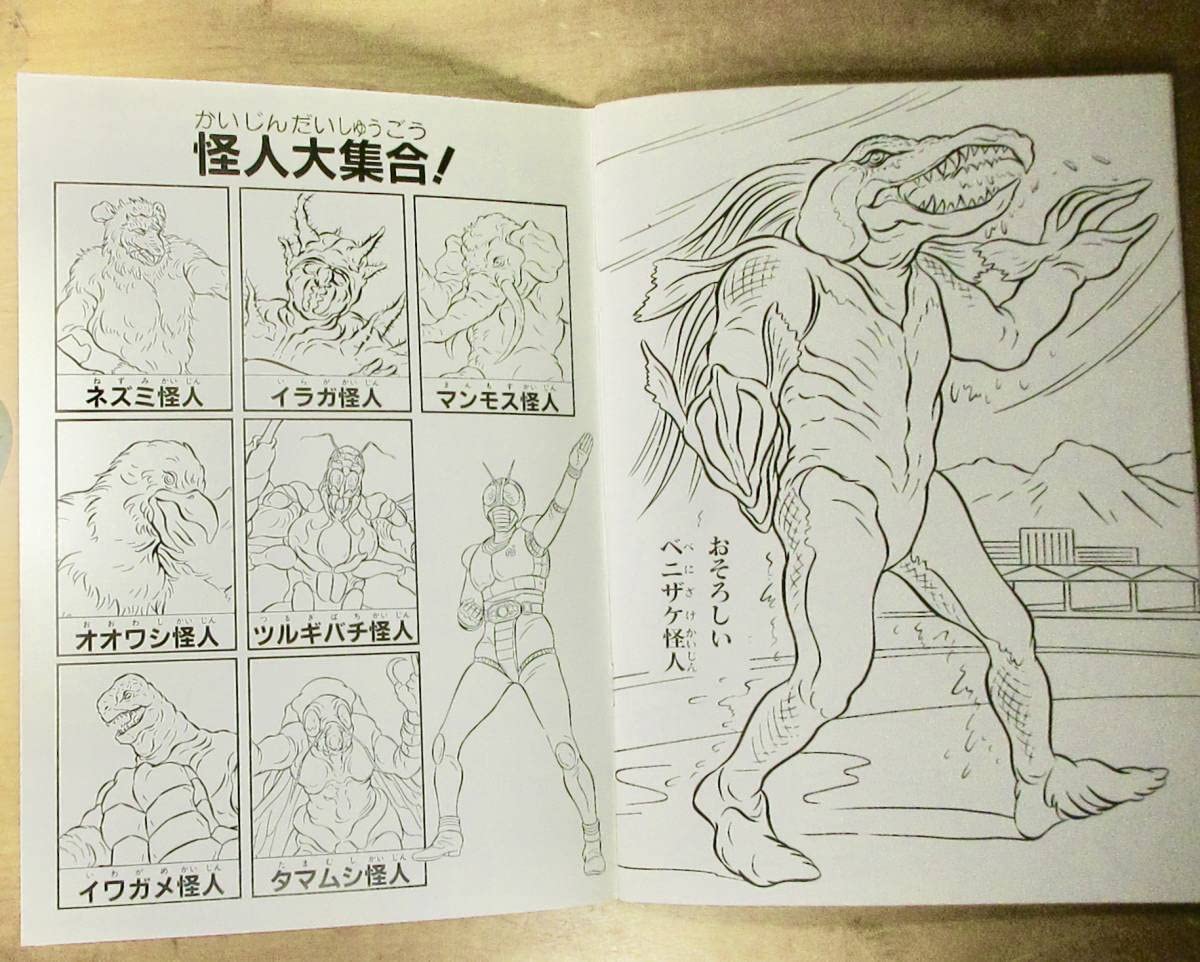 かいじんだいしゅうごう
怪人大集合!
ねずみかいじん
ネズミ怪人
いらがかいじん
イラガ怪人
まんもすかいじん
マンモス怪人
おおわしかいじん
オオワシ怪人
つるぎばちかいじん
ツルギバチ怪人
いわがめかいじん
イワガメ怪人
たまむしかいじん
タマムシ怪人
おそろしい
ベニザケ怪人
べにざけかいじん